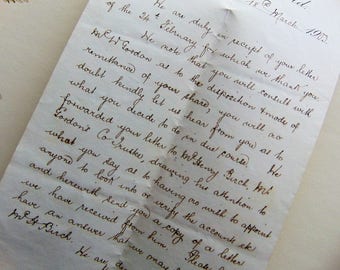 March 190
We are duly in receipt of your letter
of the 24th February for which we thank you
We note that you will consult with
Mr E G London as to the disposition & mode of
remittance of your share you will no
doubt kindly let us hear from you as to
what you decide to do in due course. We
forwarded your letter to Mr Henry Birch, Mr
London's Co. Trustee, drawing his attention to
what you say as to having no wish to appoint
anyone to look into & verify the accounts etc
and herewith send you a copy of a letter
we have received from him. Please
have an answer that we may
Mr E G Birch.
We are